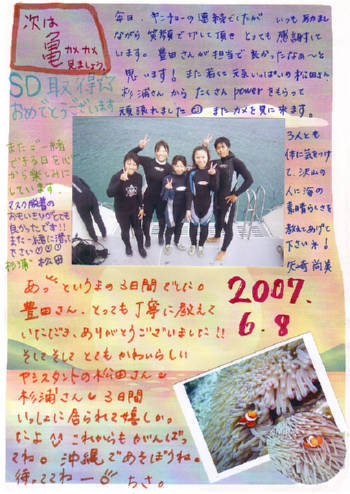 次は
亀カメカメ
見ましょう。
SD取得
おめでとうございます
毎日、ヤンチャーの連続でしたが いつもあたま
ながら 笑顔でけして頂き とっても感謝して
います。豊田さんが担当で良かったなぁ〜と
思います! また若くて元気いっぱいの松田さん
杉浦さんから たくさんpowerをもらって
頑張れました またカメを見に来ます。
3人とも
体に気をつけ
て、沢山の
人に海の
素晴らしさを
教えてあげて
下さいネ!
矢崎 尚美
またご一緒
できる日を心
から楽しみに
しています。
マスク脱着の
おもいきりがとても
良かったです!!
また一緒に潜って
下さい♡♡♡
杉浦 松田
あっというまの3日間でした。
豊田さん、とっても丁寧に教えて
いただき、ありがとうございました!!
そしてそして とてもかわいらしい
アシスタントの松田さん
杉浦さん 3日間
いっしょに居られて嬉しか
たよ これからもがんばっ
てね。沖縄であそぼうね。
待っててねー
ちさ。
2007.
6.8